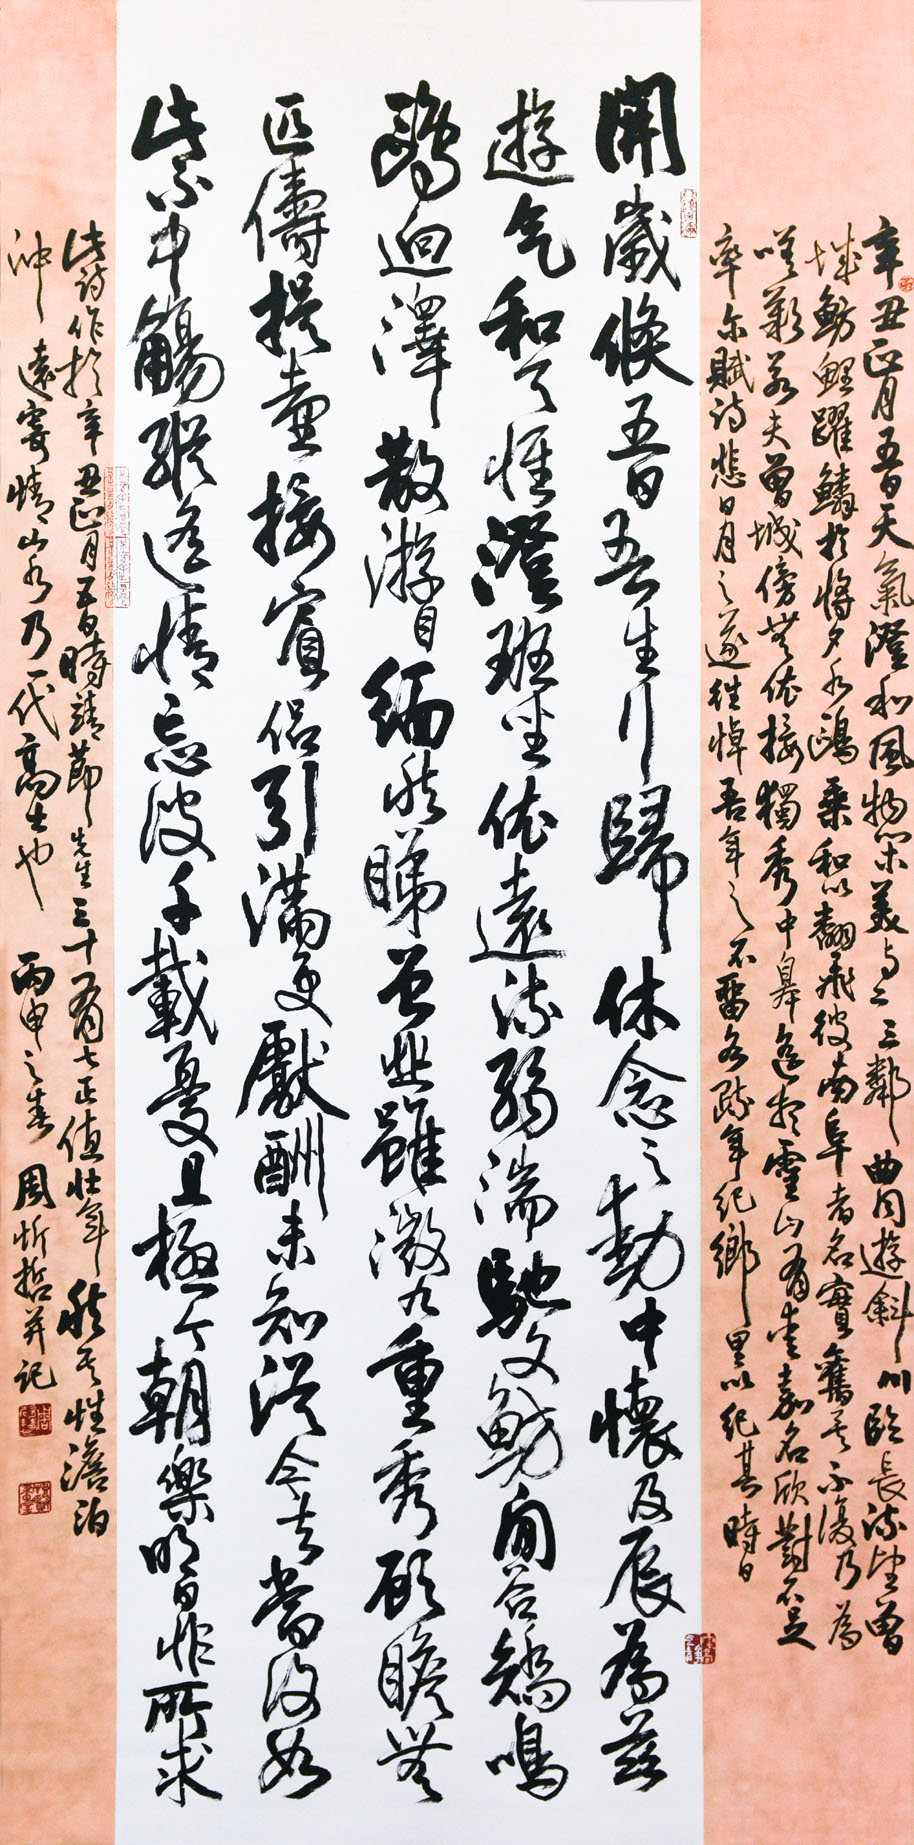 辛丑正月五日天氣澄和風物閑美与二三鄰曲同遊斜川臨長流望曾
城魴鯉躍鱗於將夕水鷗乘和以翻飛彼南阜者名實舊矣不復乃為
嗟歎若夫曾城傍無依接獨秀中皋遙想靈山有愛嘉名欣對不足
率尔賦詩悲日月之遂往悼吾年之不留各疏年紀鄉里以紀其時日
開歲倏五日吾生行歸休念之動中懷及辰為茲
遊气和天惟澄班坐依遠流弱湍馳文魴閒谷矯鳴
鷗迥澤散游目緬然睇曾丘雖微九重秀顧瞻無
匹儔提壺接賓侶引滿更獻酬未知從今去當復如
此不中觴縱遙情忘彼千載憂且極今朝樂明日非所求
此詩作於辛丑正月五日時靖節先生三十有七正值壯年然其性澹泊
沖遠寄情山水乃一代高士也 丙申之春 周忻哲并記